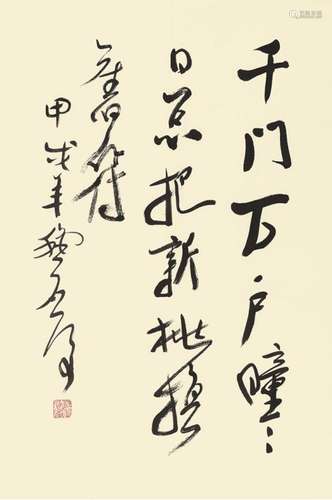 千门万户曈〻
日总把新桃换
舊符
甲戌年